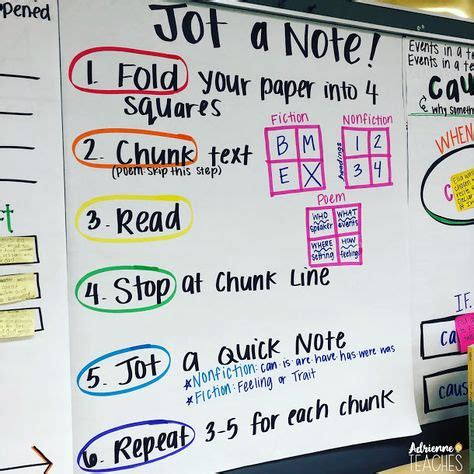 Jot a Note!
1. Fold your paper into 4
squares
2. Chunk text
(Poem: Skip this step)
Fiction
B M
E X
Nonfiction
headings
1 2
3 4
Poem
WHO speaker
WHAT events
WHERE setting
HOW feeling
3. Read
4. Stop at Chunk Line
5. Jot a Quick Note
*Nonfiction: can is are have has were was
*Fiction: Feeling or Trait
6. Repeat 3-5 for each chunk
pened
Events in a
Events in a te
cau
why someth
WHEN
IF
cau
caus
Adrienne
TEACHES